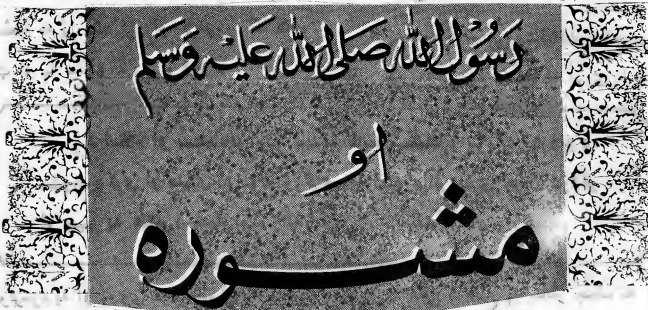 رَسُوْلُ اللّٰه صَلَى اللّٰه عَلَيْهِ وَسَلَم
او
مشوره